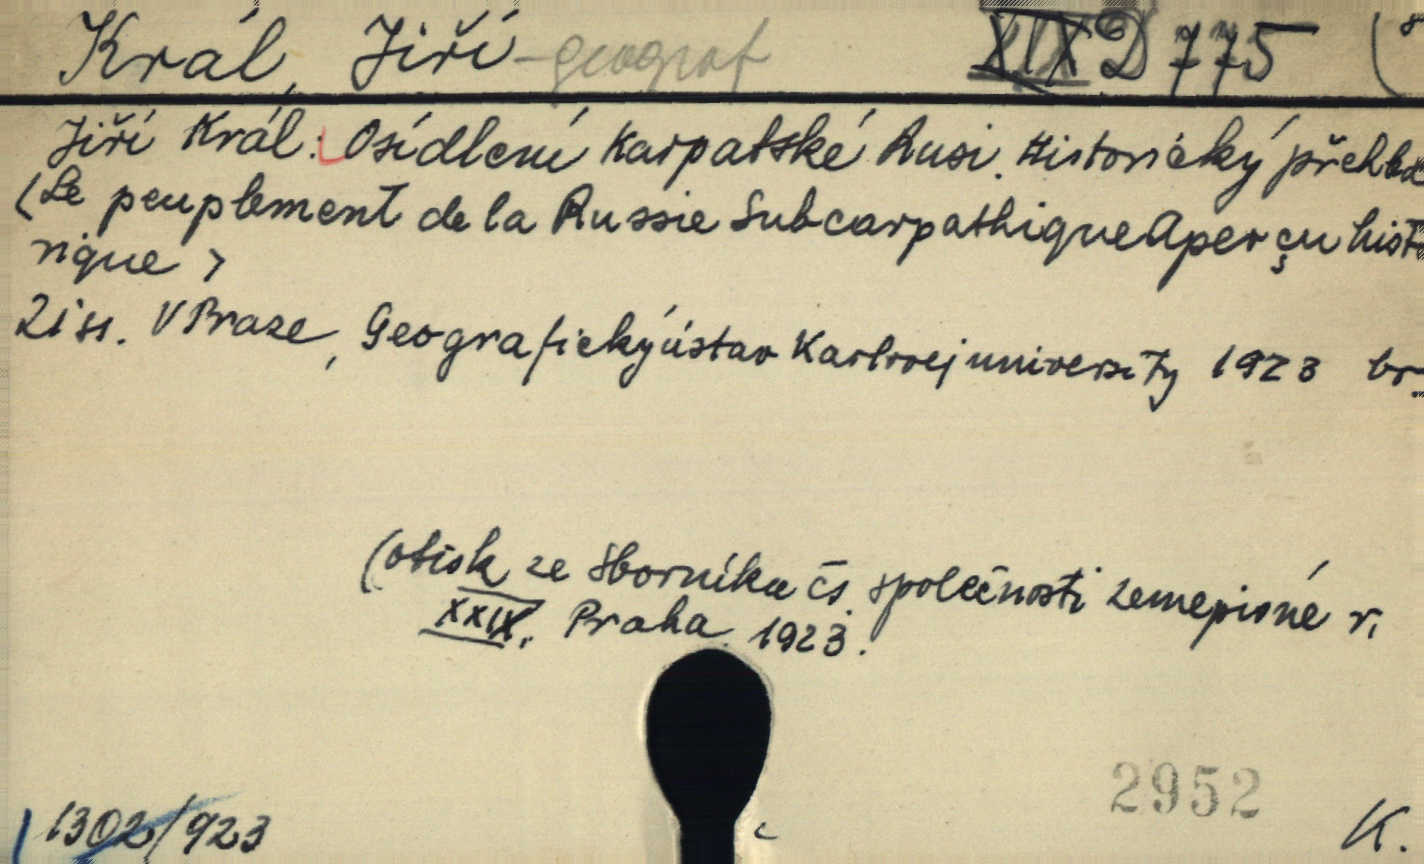 Král, Jiří - geograf XIX D 775 (8
Jiří Král: Osídlení Karpatské Rusi. Historický přehled
(Le peuplement de la Russie Subcarpathique Aperçu histo
rique)
21 ss. V Praze, Geografický ústav Karlovej university 1923 br.
(otisk ze Sborníku čs. společnosti zeměpisné r.
XXIX. Praha 1923.
2952
1302/923 K.